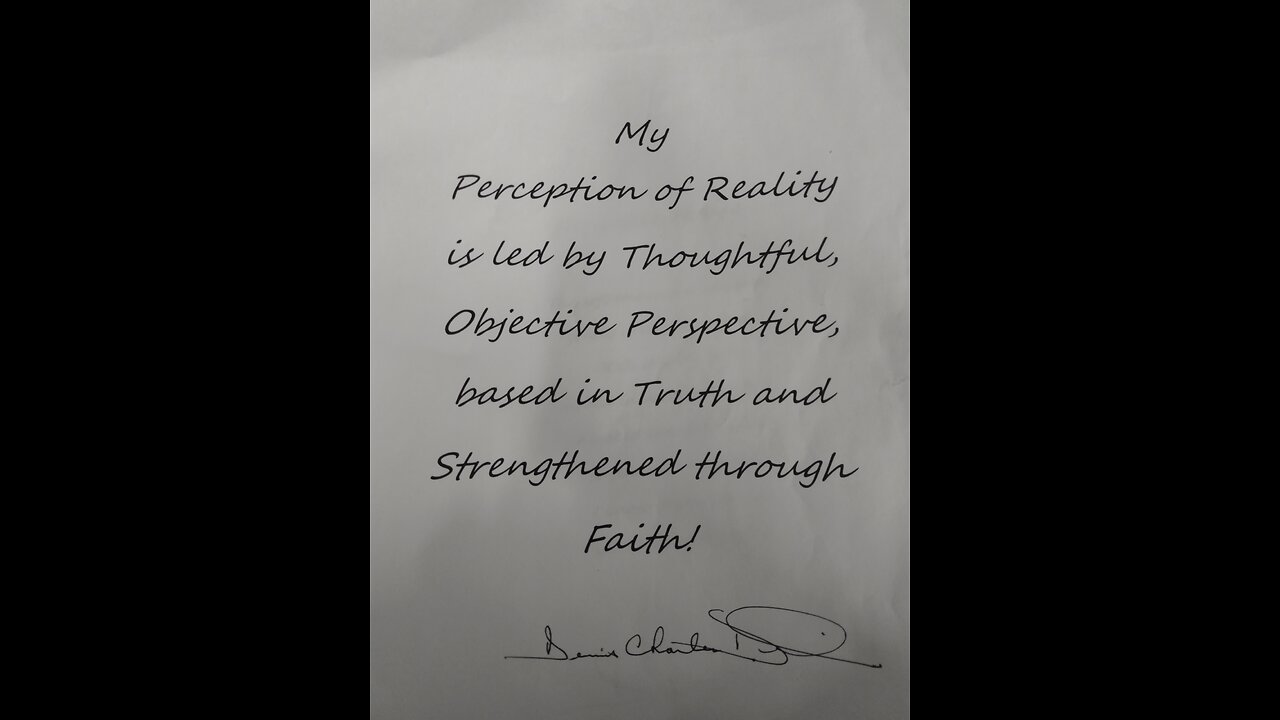 My
Perception of Reality
is led by Thoughtful,
Objective Perspective,
based in Truth and
Strengthened through
Faith!
Denis Charles